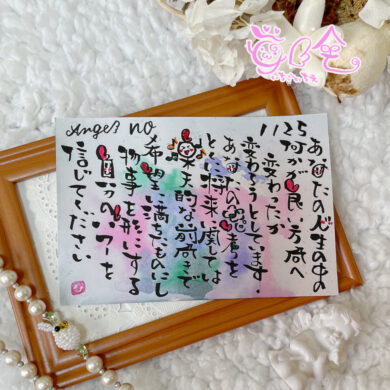 Angel NO. 1125
あなたの人生の中の
何かが良い方向へ
変わったか
変わろうとしています。
あなたの を
とくに将来に関しては
楽天的な前向きで
希望に満ちたものにし
物事を形にする
自らのパワーを
信じてください